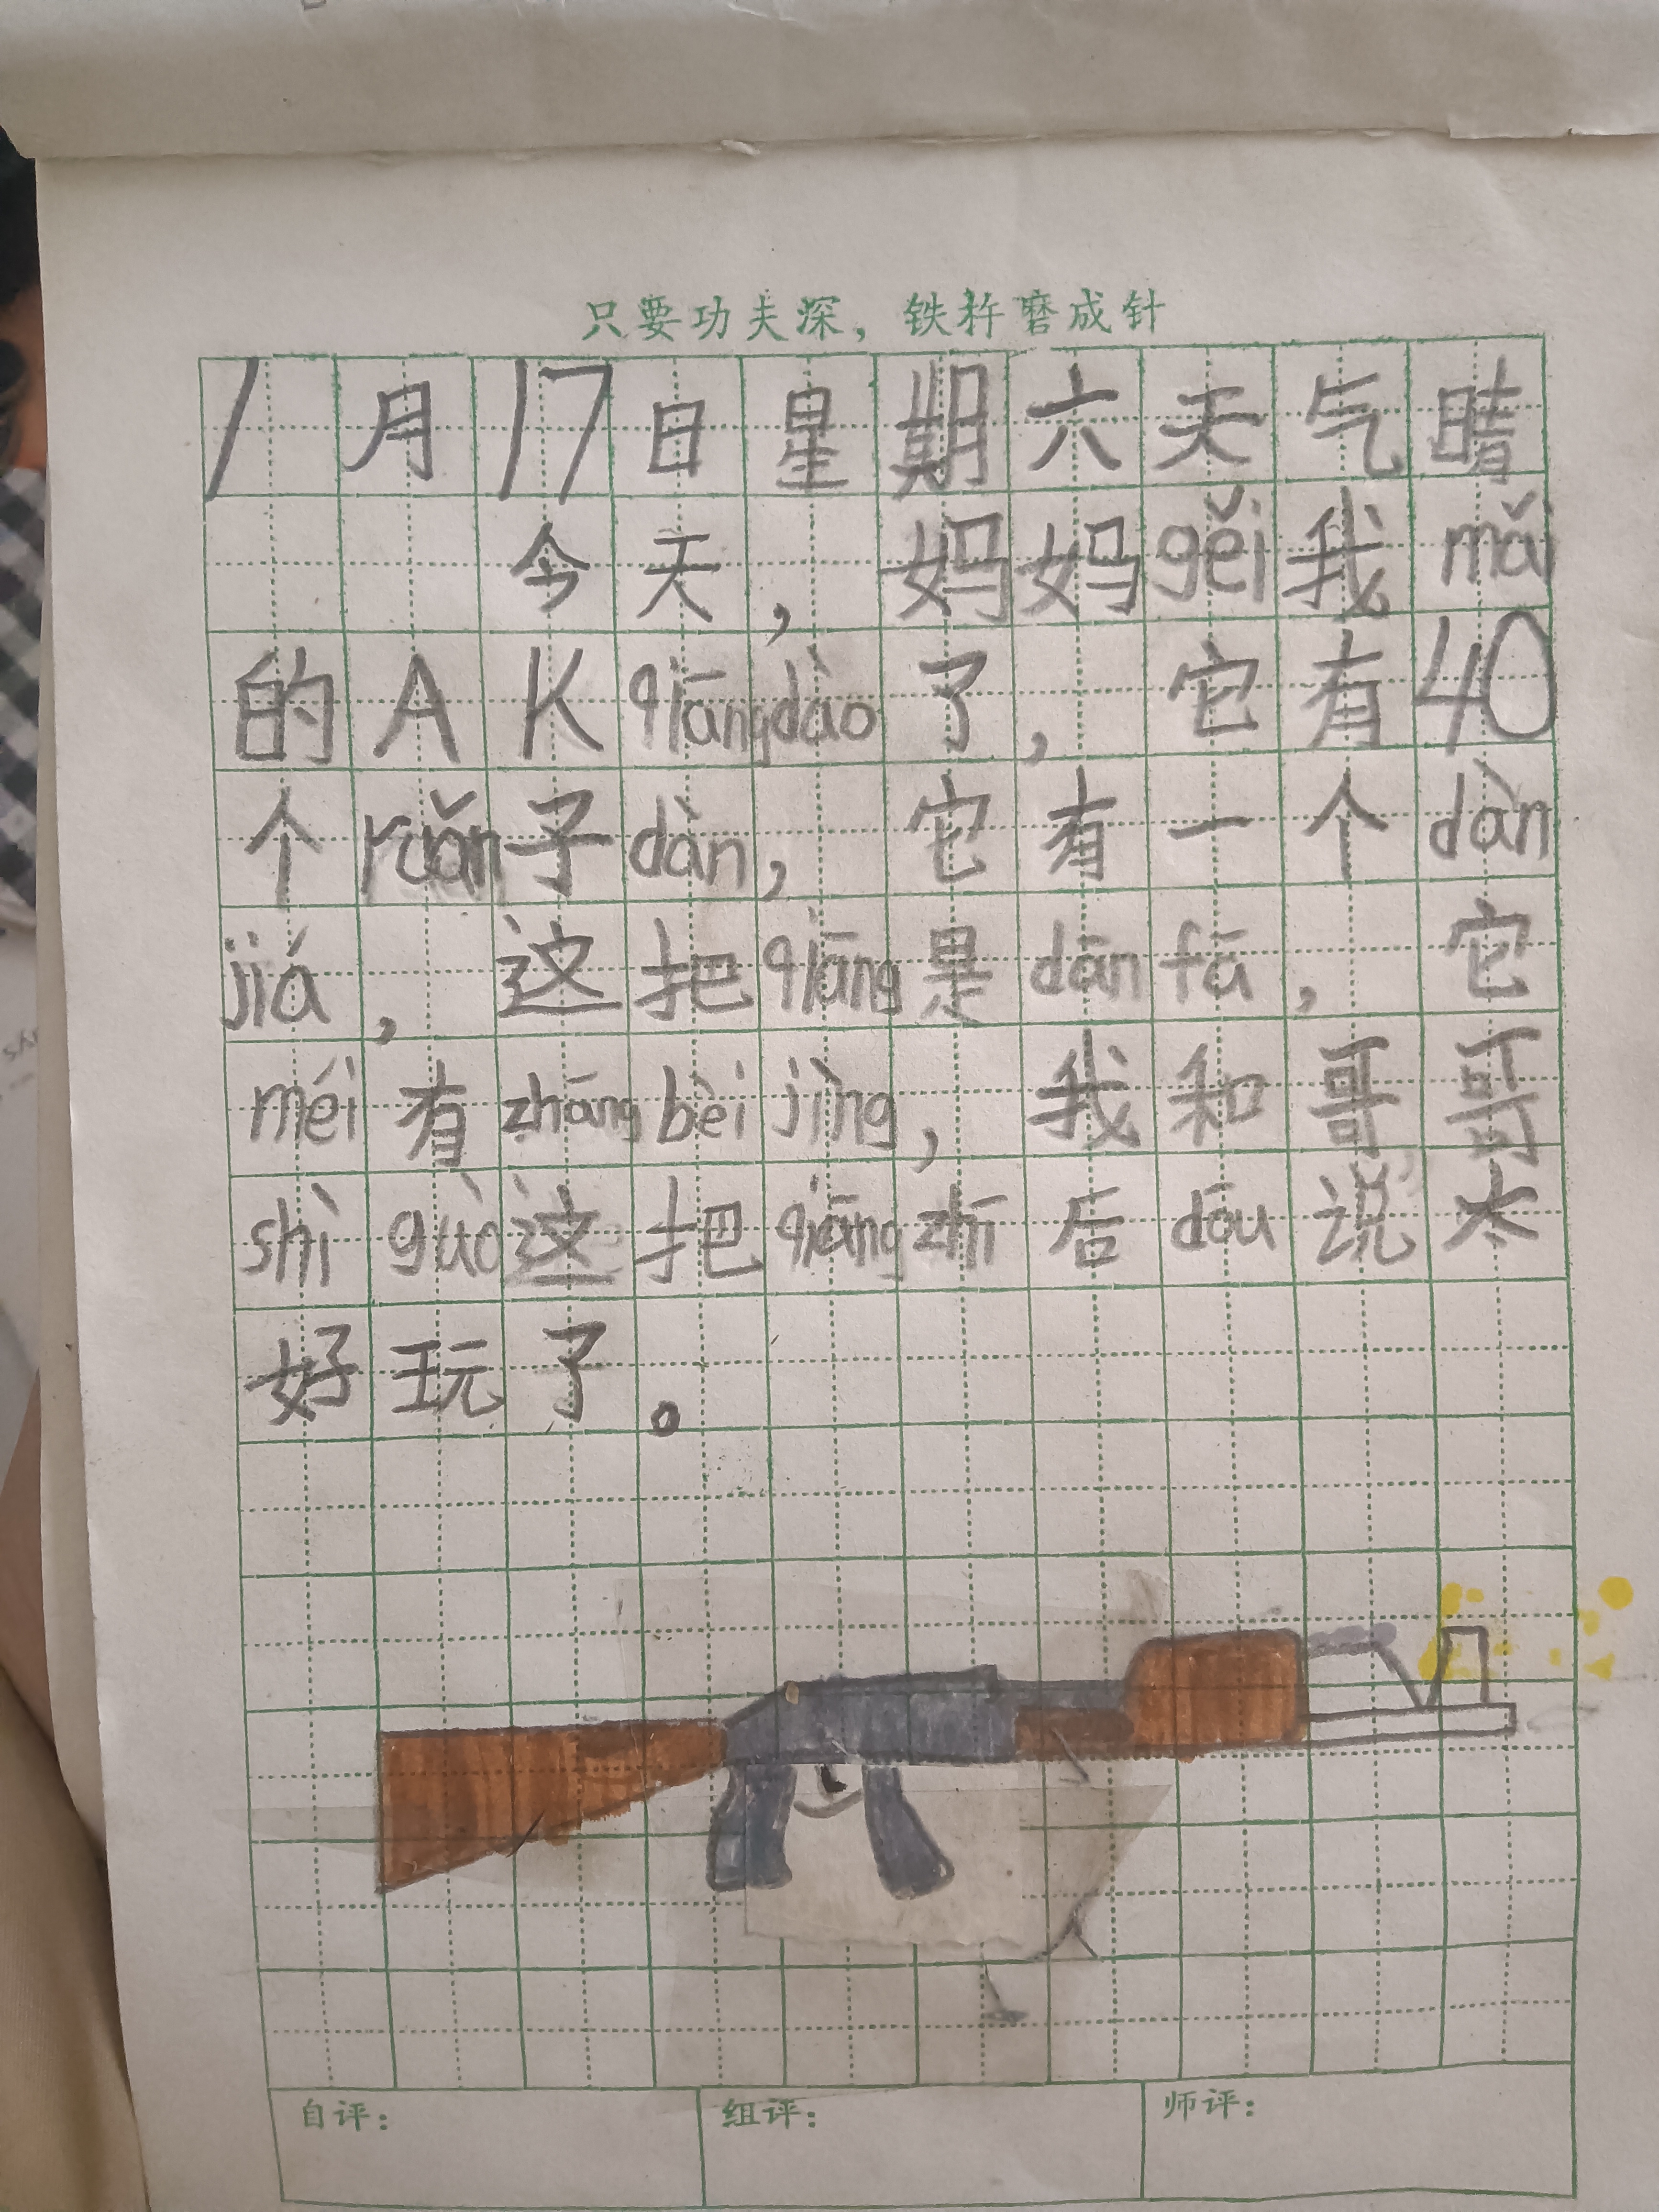 只要功夫深，铁杵磨成针
1月17日星期六天气晴
今天，妈妈gěi我mǎi
的AKqiāngdào了，它有40
个ruǎn子dàn，它有一个dàn
jiá，这把qiāng是dānfā，它
méi有zhāngbèijìng，我和哥哥
shìguò这把qiāngzhī后dōu说太
好玩了。
自评：
组评：
师评：